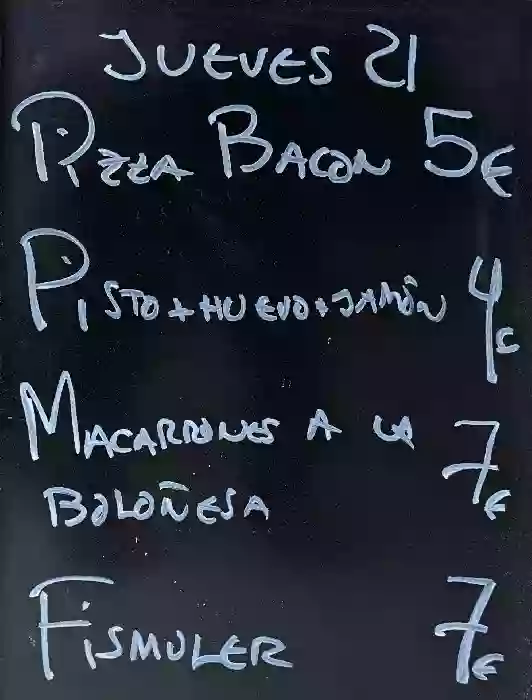 JUEVES 21
PIZZA BACON 5€
PISTO + HUEVO + JAMÓN 4€
MACARRONES A LA 7€
BOLOÑESA
FISMULER 7€